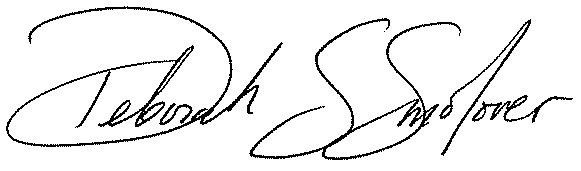 Deborah S Smolover